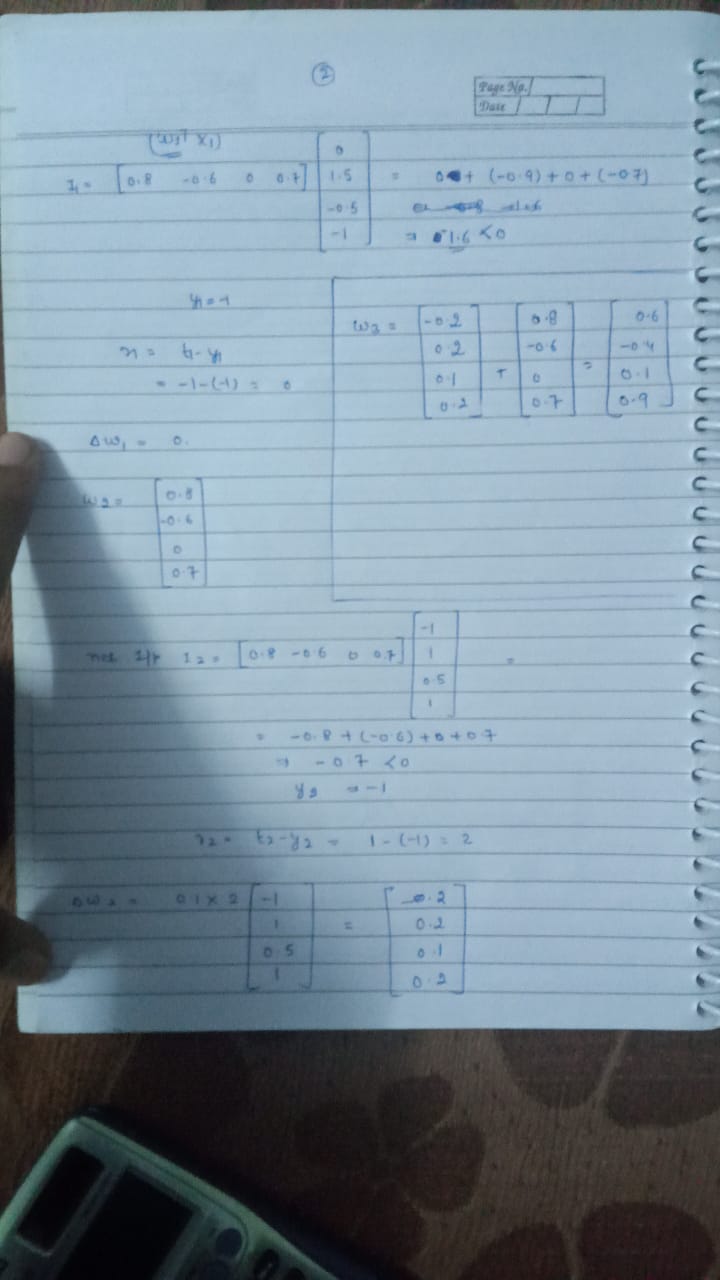 2
Page No.
Date
(W₁ᵀ X₁)
I₁ = [0.8 -0.6 0 0.7] [0 1.5 -0.5 -1] = 0 + (-0.9) + 0 + (-0.7)
⇒ -1.6 < 0
y₁ = -1
r₁ = t₁ - y₁
= -1 - (-1) = 0
ΔW₁ = 0.
W₂ = [0.8 -0.6 0 0.7]
W₃ = [-0.2 0.2 0.1 0.2] + [0.8 -0.6 0 0.7] = [0.6 -0.4 0.1 0.9]
net I/p I₂ = [0.8 -0.6 0 0.7] [-1 1 0.5 1] =
= -0.8 + (-0.6) + 0 + 0.7
⇒ -0.7 < 0
y₂ = -1
r₂ = t₂ - y₂ = 1 - (-1) = 2
ΔW₂ = 0.1 × 2 [-1 1 0.5 1] = [-0.2 0.2 0.1 0.2]